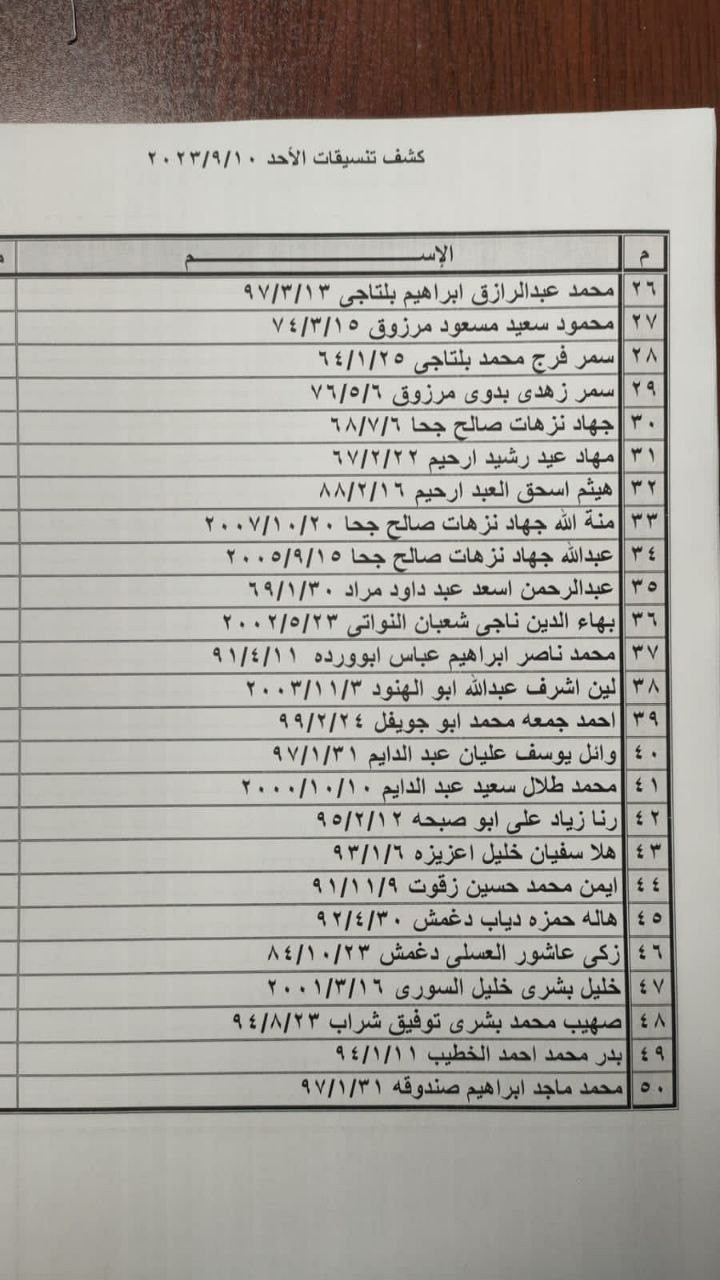 كشف تنسيقات الأحد ٢٠٢٣/٩/١٠
م الإســــــــم م
٢٦ محمد عبدالرازق ابراهيم بلتاجى ٩٧/٣/١٣
٢٧ محمود سعيد مسعود مرزوق ٧٤/٣/١٥
٢٨ سمر فرج محمد بلتاجى ٦٤/١/٢٥
٢٩ سمر زهدى بدوى مرزوق ٧٦/٥/٦
٣٠ جهاد نزهات صالح جحا ٦٨/٧/٦
٣١ مهاد عيد رشيد ارحيم ٦٧/٢/٢٢
٣٢ هيثم اسحق العبد ارحيم ٨٨/٢/١٦
٣٣ منة الله جهاد نزهات صالح جحا ٢٠٠٧/١٠/٢٠
٣٤ عبدالله جهاد نزهات صالح جحا ٢٠٠٥/٩/١٥
٣٥ عبدالرحمن اسعد عبد داود مراد ٦٩/١/٣٠
٣٦ بهاء الدين ناجى شعبان النواتى ٢٠٠٢/٥/٢٣
٣٧ محمد ناصر ابراهيم عباس ابوورده ٩١/٤/١١
٣٨ لين اشرف عبدالله ابو الهنود ٢٠٠٣/١١/٣
٣٩ احمد جمعه محمد ابو جويفل ٩٩/٢/٢٤
٤٠ وائل يوسف عليان عبد الدايم ٩٧/١/٣١
٤١ محمد طلال سعيد عبد الدايم ٢٠٠٠/١٠/١٠
٤٢ رنا زياد على ابو صبحه ٩٥/٢/١٢
٤٣ هلا سفيان خليل اعزيزه ٩٣/١/٦
٤٤ ايمن محمد حسين زقوت ٩١/١١/٩
٤٥ هاله حمزه دياب دغمش ٩٢/٤/٣٠
٤٦ زكى عاشور العسلى دغمش ٨٤/١٠/٢٣
٤٧ خليل بشرى خليل السورى ٢٠٠١/٣/١٦
٤٨ صهيب محمد بشرى توفيق شراب ٩٤/٨/٢٣
٤٩ بدر محمد احمد الخطيب ٩٤/١/١١
٥٠ محمد ماجد ابراهيم صندوقه ٩٧/١/٣١